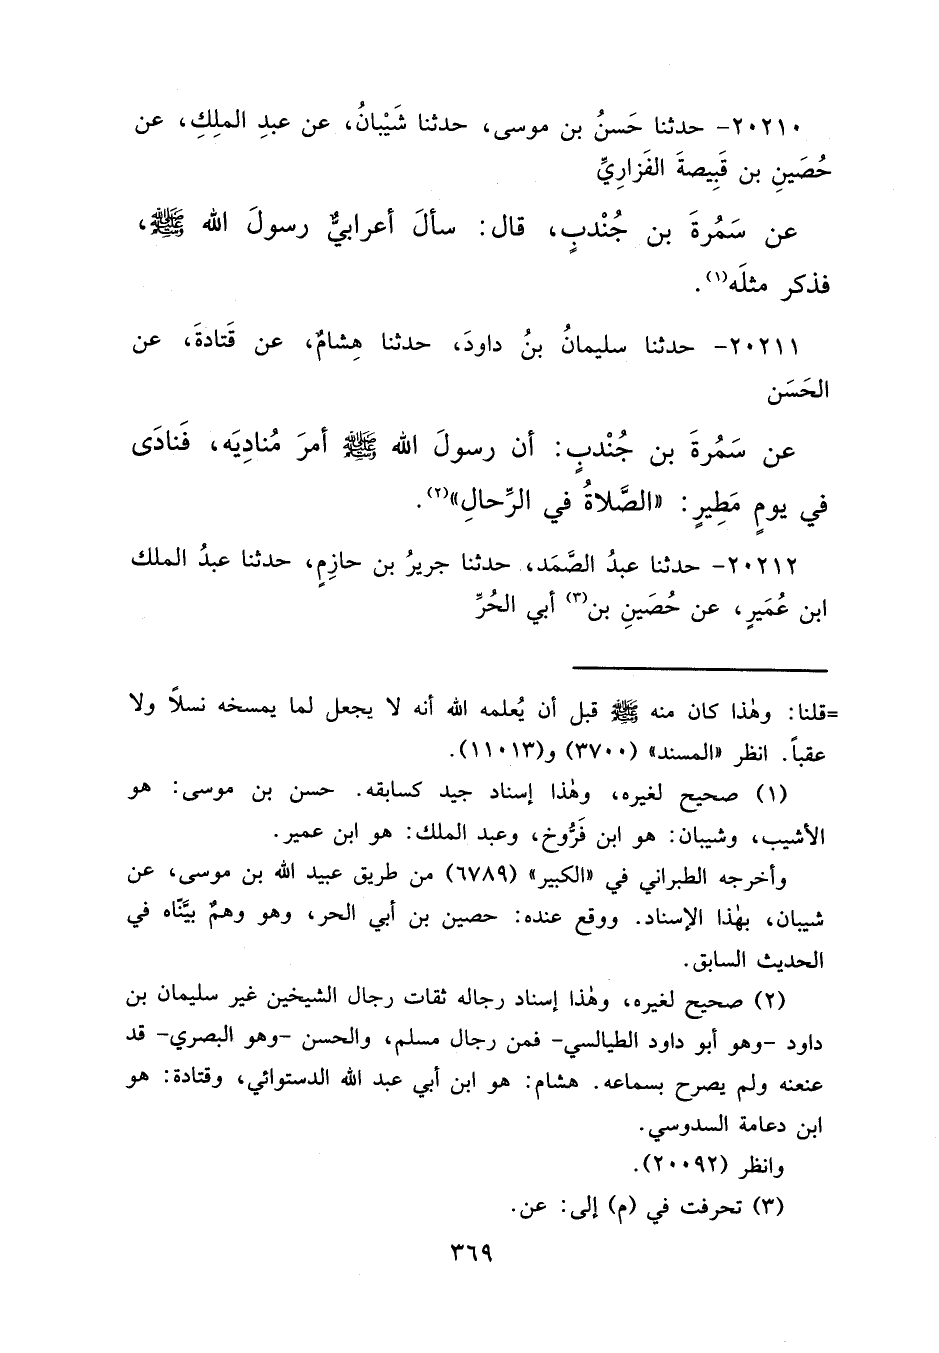 ٢٠٢١٠- حدثنا حَسنُ بن موسى، حدثنا شَيْبانُ، عن عبدِ الملِكِ، عن
حُصَينِ بن قَبِيصةَ الفَزاريِّ
عن سَمُرةَ بن جُنْدبٍ، قال: سألَ أعرابيٌّ رسولَ الله ﷺ،
فذكر مثلَه(١).
٢٠٢١١- حدثنا سليمانُ بنُ داودَ، حدثنا هِشامٌ، عن قَتادةَ، عن
الحَسَن
عن سَمُرةَ بن جُنْدبٍ: أن رسولَ الله ﷺ أمرَ مُنادِيَه، فَنادَى
في يومٍ مَطِيرٍ: «الصَّلاةُ في الرِّحالِ»(٢).
٢٠٢١٢- حدثنا عبدُ الصَّمَد، حدثنا جريرُ بن حازِمٍ، حدثنا عبدُ الملك
ابن عُمَيرٍ، عن حُصَينِ بن(٣) أبي الحُرِّ
=قلنا: وهٰذا كان منه ﷺ قبل أن يُعلمه الله أنه لا يجعل لما يمسخه نسلاً ولا
عقباً. انظر «المسند» (٣٧٠٠) و(١١٠١٣).
(١) صحيح لغيره، وهٰذا إسناد جيد كسابقه. حسن بن موسى: هو
الأشيب، وشيبان: هو ابن فَرُّوخ، وعبد الملك: هو ابن عمير.
وأخرجه الطبراني في «الكبير» (٦٧٨٩) من طريق عبيد الله بن موسى، عن
شيبان، بهٰذا الإسناد. ووقع عنده: حصين بن أبي الحر، وهو وهمٌ بيَّنّاه في
الحديث السابق.
(٢) صحيح لغيره، وهٰذا إسناد رجاله ثقات رجال الشيخين غير سليمان بن
داود -وهو أبو داود الطيالسي- فمن رجال مسلم، والحسن -وهو البصري- قد
عنعنه ولم يصرح بسماعه. هشام: هو ابن أبي عبد الله الدستوائي، وقتادة: هو
ابن دعامة السدوسي.
وانظر (٢٠٠٩٢).
(٣) تحرفت في (م) إلى: عن.
٣٦٩